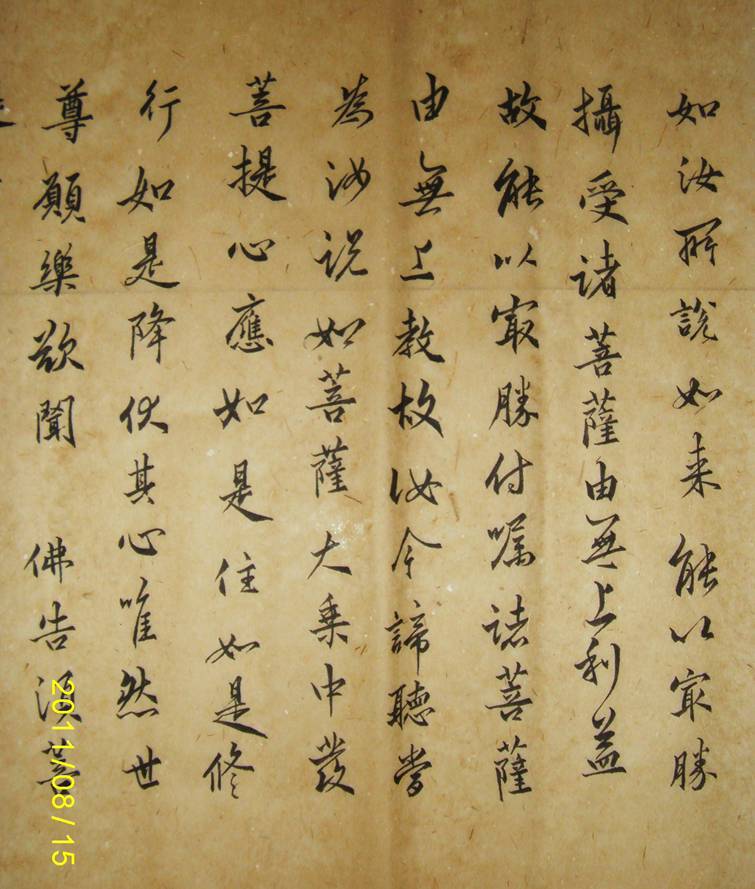 如汝所說如来能以冣勝
攝受諸菩薩由無上利益
故能以冣勝付嘱諸菩薩
由無上教故汝今諦聽當
為汝说如菩薩大乗中發
菩提心應如是住如是修
行如是降伏其心唯然世
尊願樂欲聞 佛告須菩
2011/08/15